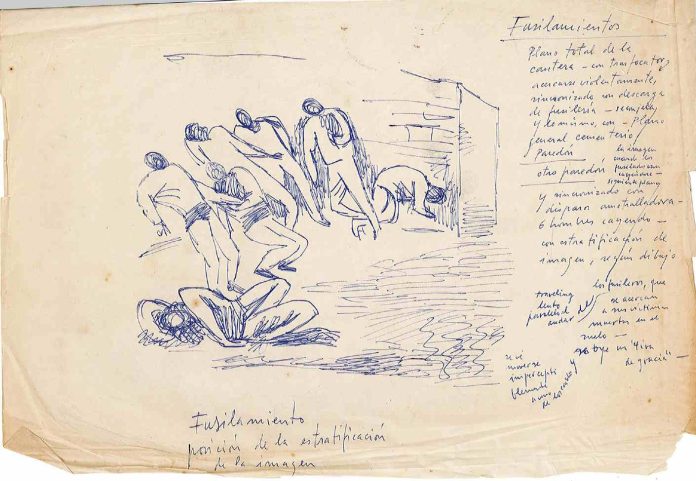 Fusilamientos
Plano total de la
cantera – con transfocator,
acercarse violentamente,
sincronizado con descarga
de fusilería –
y lo mismo, con – Plano
general cementerio
Paredón
en imagen
cuando los
otro paredón
siguiente plano
y sincronizado con
disparo ametralladora –
6 hombres cayendo –
con estratificación de
imagen, según dibujo
traveling
lento
paralelo al
andar de
los fusileros, que
se acercan
a sus víctimas
muertas en el
suelo –
se oye un "tiro
de gracia" –
y
se ve
moverse
impercepti
blemente
a uno
de los caídos
Fusilamiento
posición de la estratificación
de la imagen